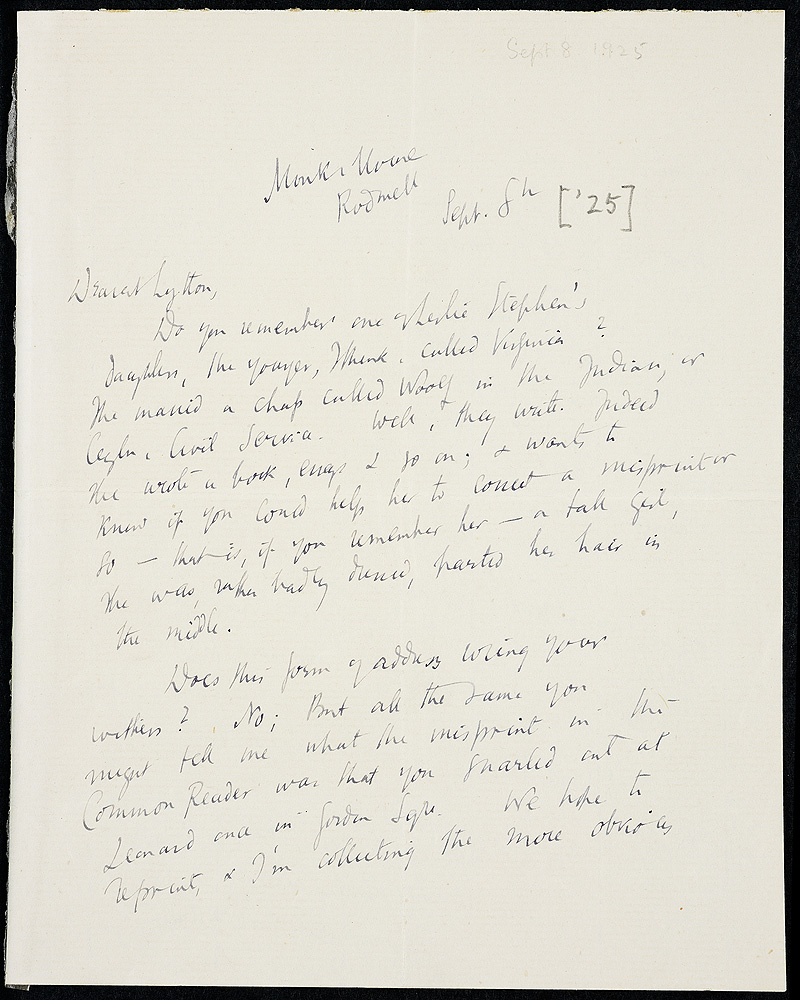 Sept 8 1925
Monks House
Rodmell
Sept. 8th ['25]
Dearest Lytton,
Do you remember one of Leslie Stephen's
Daughters, the younger, I think, called Virginia?
She married a chap called Woolf in the Indian, or
Ceylon, Civil Service. Well, they write. Indeed
she wrote a book, essays & so on; & wants to
know if you could help her to correct a misprint or
so — that is, if you remember her — a tall girl,
she was, rather badly dressed, parted her hair in
the middle.
Does this form of address wring your
withers? No; But all the same you
might tell me what the misprint in the
Common Reader was that you snarled out at
Leonard once in Gordon Sqre. We hope to
reprint, & I'm collecting the more obvious